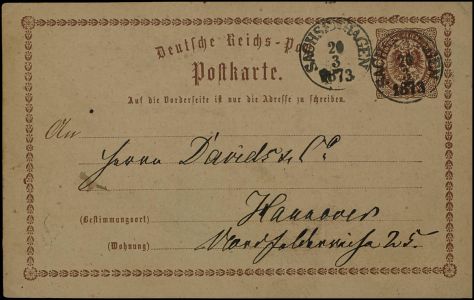 Deutsche Reichs-Post
Postkarte.
Auf die Vorderseite ist nur die Adresse zu schreiben.
SACHSENHAGEN
20
3
1873
SACHSENHAGEN
20
3
1873
An
Herrn Davids & Co
(Bestimmungsort)
Hannover
(Wohnung)
25.